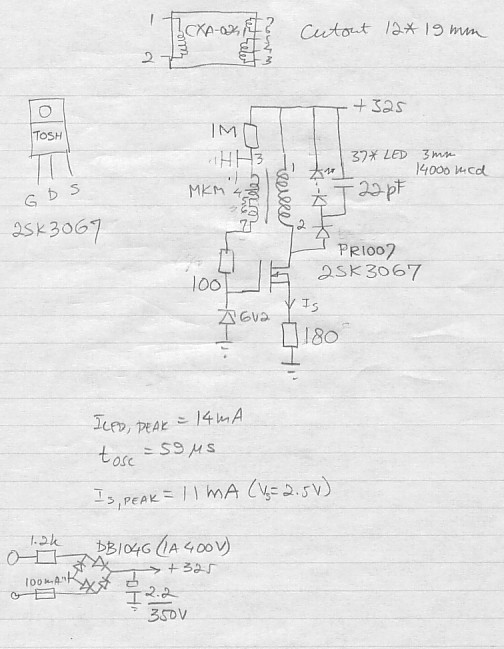 1
2
CXA-02
7
6
5
4
3
Cutout 12*19 mm
TOSH
G D S
2SK3067
+325
1M
3
MKM
4
7
1
2
37* LED 3mm
14000mcd
22pF
PR1007
2SK3067
100
6V2
Is
180
ILED, PEAK = 14mA
tosc = 59 μs
Is, PEAK = 11 mA (Vs=2.5V)
1.2k
DB104G (1A 400V)
+325
100mA
2.2
350V